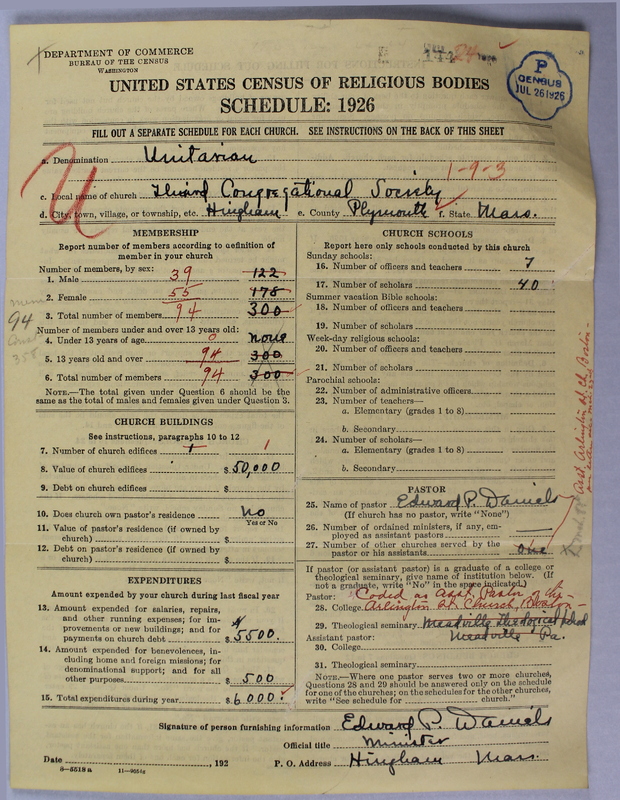 DEPARTMENT OF COMMERCE
BUREAU OF THE CENSUS
WASHINGTON
P
CENSUS
JUL 26 1926
UNITED STATES CENSUS OF RELIGIOUS BODIES
SCHEDULE: 1926
FILL OUT A SEPARATE SCHEDULE FOR EACH CHURCH. SEE INSTRUCTIONS ON THE BACK OF THIS SHEET
a. Denomination Unitarian
1-9-3
c. Local name of church Third Congregational Society
d. City, town, village, or township, etc. Hingham e. County Plymouth f. State Mass.
MEMBERSHIP
Report number of members according to definition of
member in your church
Number of members, by sex:
1. Male 39 122
2. Female 55 178
3. Total number of members 94 300
Number of members under and over 13 years old:
4. Under 13 years of age 0 none
5. 13 years old and over 94 300
6. Total number of members 94 300
NOTE.—The total given under Question 6 should be the
same as the total of males and females given under Question 3.
mem
94
358
CHURCH BUILDINGS
See instructions, paragraphs 10 to 12
7. Number of church edifices 1 1
8. Value of church edifices $50,000
9. Debt on church edifices $
10. Does church own pastor's residence No
Yes or No
11. Value of pastor's residence (if owned by
church) $
12. Debt on pastor's residence (if owned by
church) $
EXPENDITURES
Amount expended by your church during last fiscal year
13. Amount expended for salaries, repairs,
and other running expenses; for im-
provements or new buildings; and for
payments on church debt $5500.
14. Amount expended for benevolences, in-
cluding home and foreign missions; for
denominational support; and for all
other purposes $500
15. Total expenditures during year $6000.
CHURCH SCHOOLS
Report here only schools conducted by this church
Sunday schools:
16. Number of officers and teachers 7
17. Number of scholars 40
Summer vacation Bible schools:
18. Number of officers and teachers
19. Number of scholars
Week-day religious schools:
20. Number of officers and teachers
21. Number of scholars
Parochial schools:
22. Number of administrative officers
23. Number of teachers—
a. Elementary (grades 1 to 8)
b. Secondary
24. Number of scholars—
a. Elementary (grades 1 to 8)
b. Secondary
PASTOR
25. Name of pastor Edward P. Daniels
(If church has no pastor, write "None")
26. Number of ordained ministers, if any, em-
ployed as assistant pastors
27. Number of other churches served by the
pastor or his assistants one
If pastor (or assistant pastor) is a graduate of a college or
theological seminary, give name of institution below. (If
not a graduate, write "No" in the space indicated.)
Pastor: Coded as Asst. Pastor of the
28. College Arlington St. Church, Boston—
29. Theological seminary Meadville Theological School
Assistant pastor: Meadville, Pa.
30. College
31. Theological seminary
NOTE.—Where one pastor serves two or more churches,
Questions 28 and 29 should be answered only on the schedule
for one of the churches; on the schedules for the other churches,
write "See schedule for church."
Signature of person furnishing information Edward P. Daniels
Official title Minister
Date , 192 P. O. Address Hingham Mass.
8—5518a 11—9054g